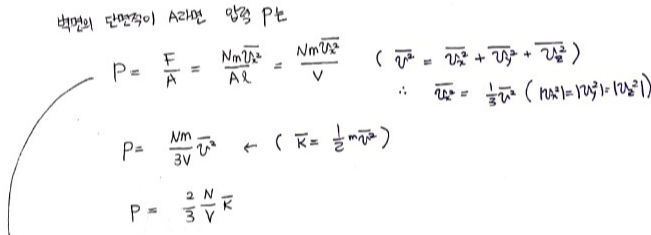 벽면의 단면적이 A라면 압력 P는
P = F/A = Nm\overline{v_x^2}/Aℓ = Nm\overline{v_x^2}/V ( \overline{v^2} = \overline{v_x^2} + \overline{v_y^2} + \overline{v_z^2} )
∴ \overline{v_x^2} = 1/3 \overline{v^2} ( |v_x^2| = |v_y^2| = |v_z^2| )
P = Nm/3V \overline{v^2} ← ( \overline{K} = 1/2 m\overline{v^2} )
P = 2/3 N/V \overline{K}